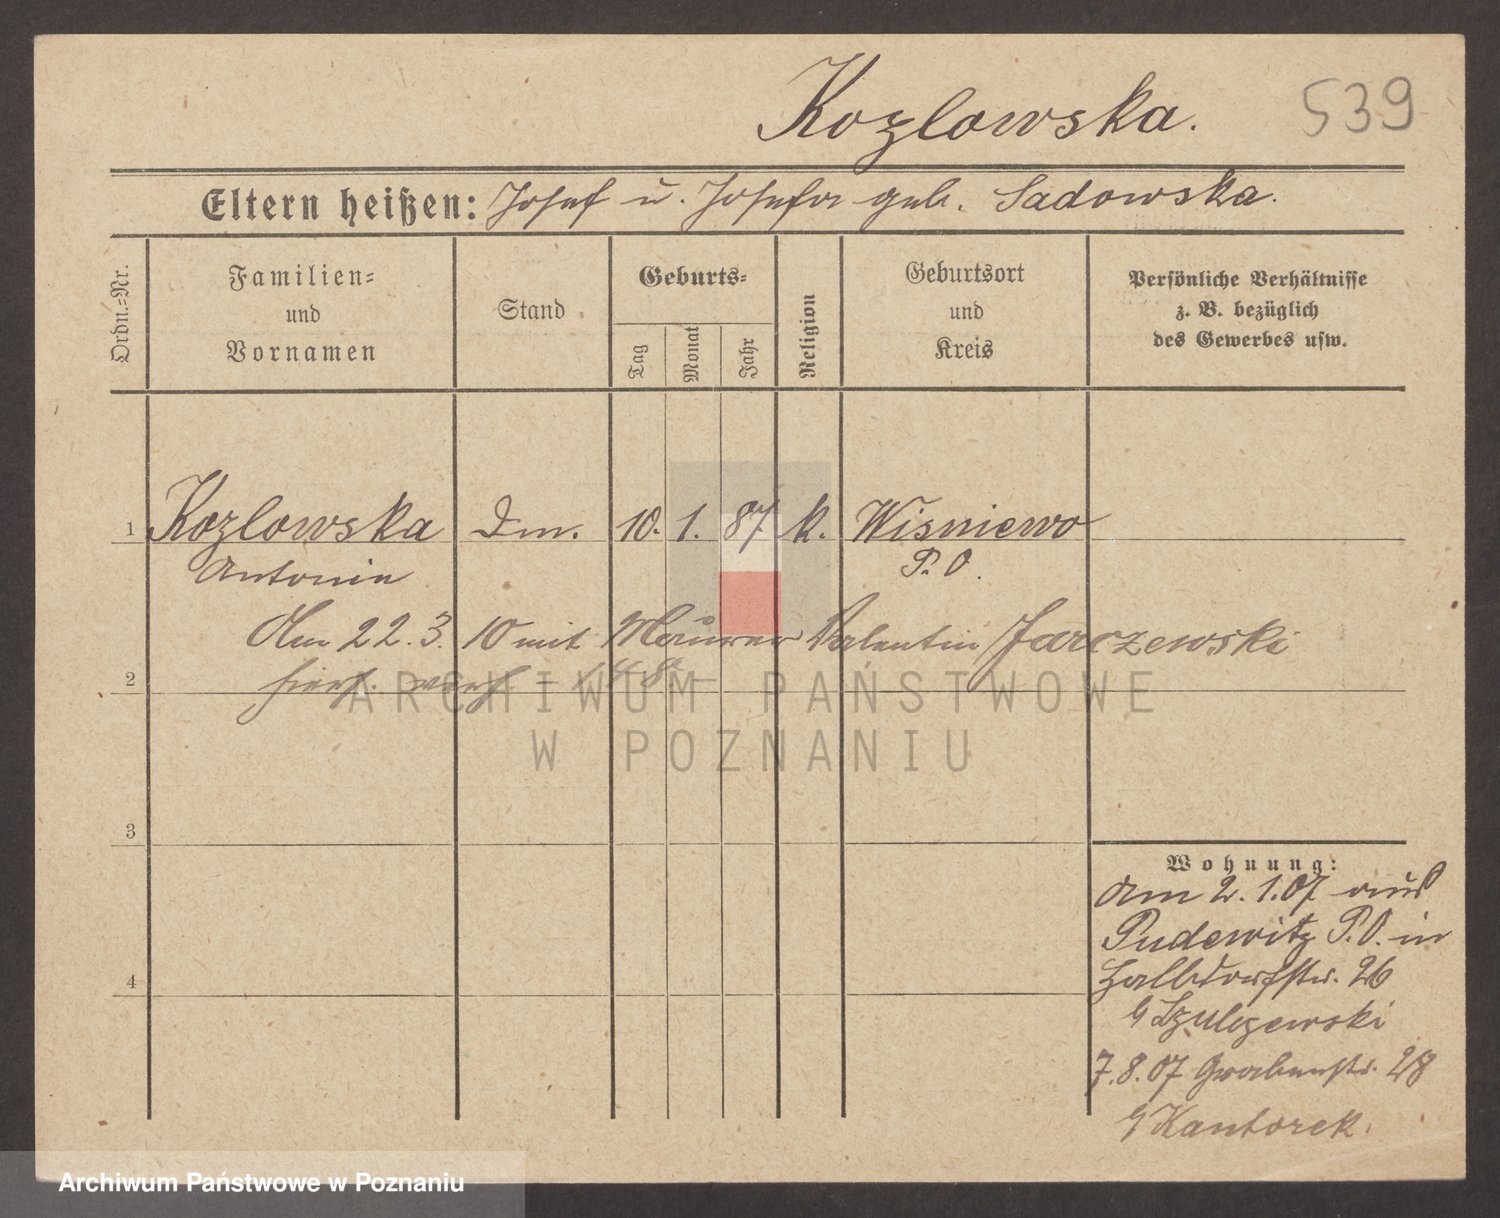 Kozlowska. 539
Eltern heißen: Josef u. Josefa geb. Sadowska.
Ordn.-Nr.
Familien-
und
Vornamen
Stand
Geburts-
Tag
Monat
Jahr
Religion
Geburtsort
und
Kreis
Persönliche Verhältnisse
z. B. bezüglich
des Gewerbes usw.
1 Kozlowska Dm. 10. 1. 87 k. Wisniewo
Antonie P. O.
Am 22. 3. 10 mit Maurer Valentin Jarczewski
2
ARCHIWUM PAŃSTWOWE
W POZNANIU
3
Wohnung:
am 2. 1. 07 aus
Pudewitz P. O. in
Halbdorfstr. 26
b/ Szulczewski
7. 8. 07 Grabenstr. 28
b/ Kantorek.
4
Archiwum Państwowe w Poznaniu